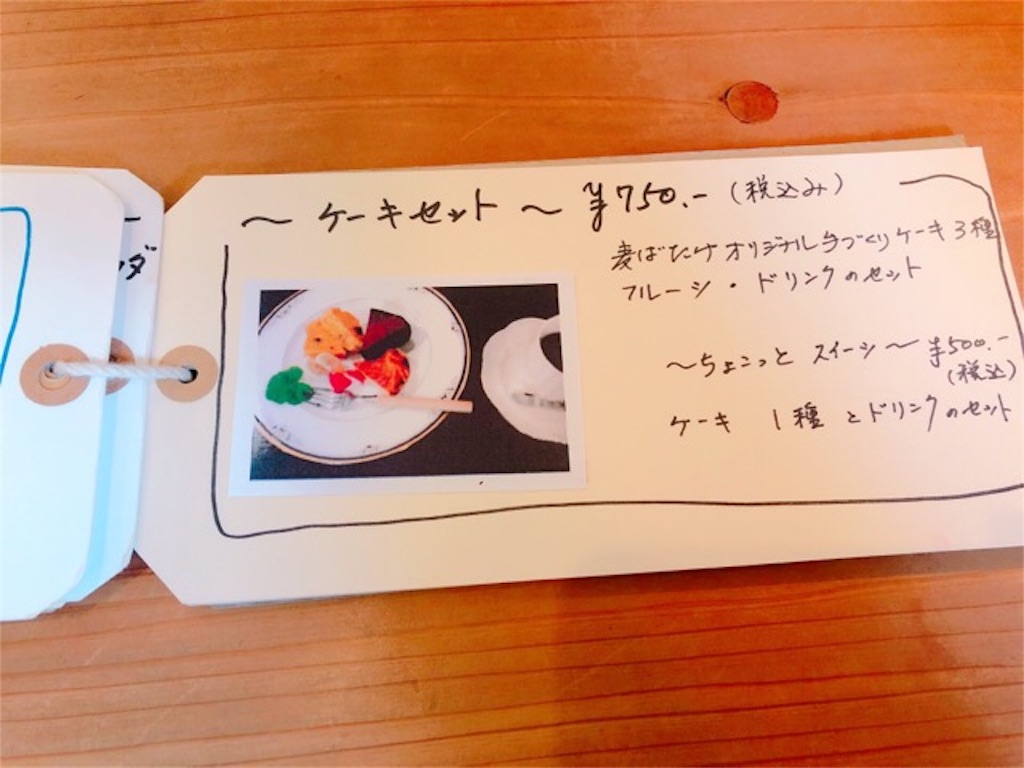 ～ ケーキセット ～ ¥750.-（税込み）
麦ばたけオリジナル手づくりケーキ3種
フルーツ・ドリンクのセット
～ちょこっと スイーツ～ ¥500.-
（税込）
ケーキ 1種 とドリンクのセット
ンダ